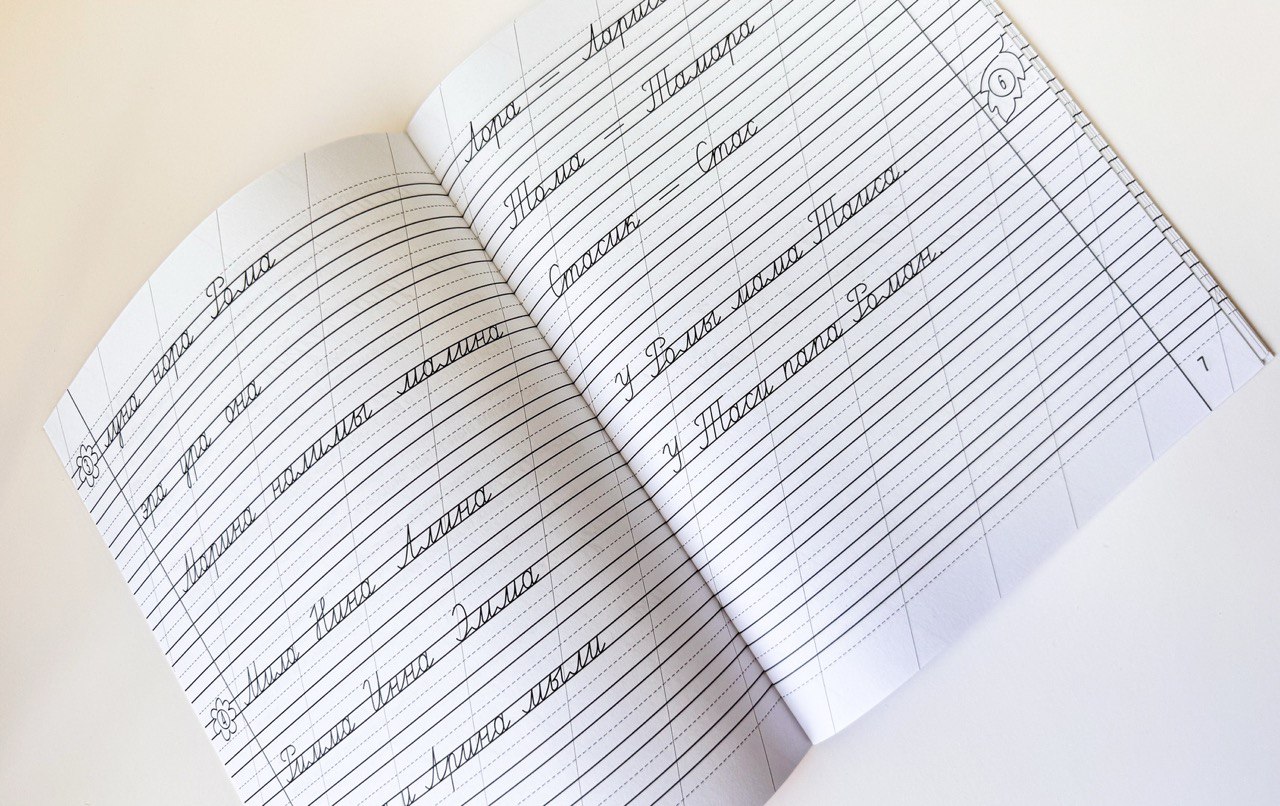 3
луна нора Рома
эра ура она
Марина налимы малина
4
Мила Нина Алина
Римма Инна Эмма
и Арина мыли
Лора –
Тома – Тамара
Стасик – Стас
у Ромы мама Таиса.
у Таси папа Роман.
6
7